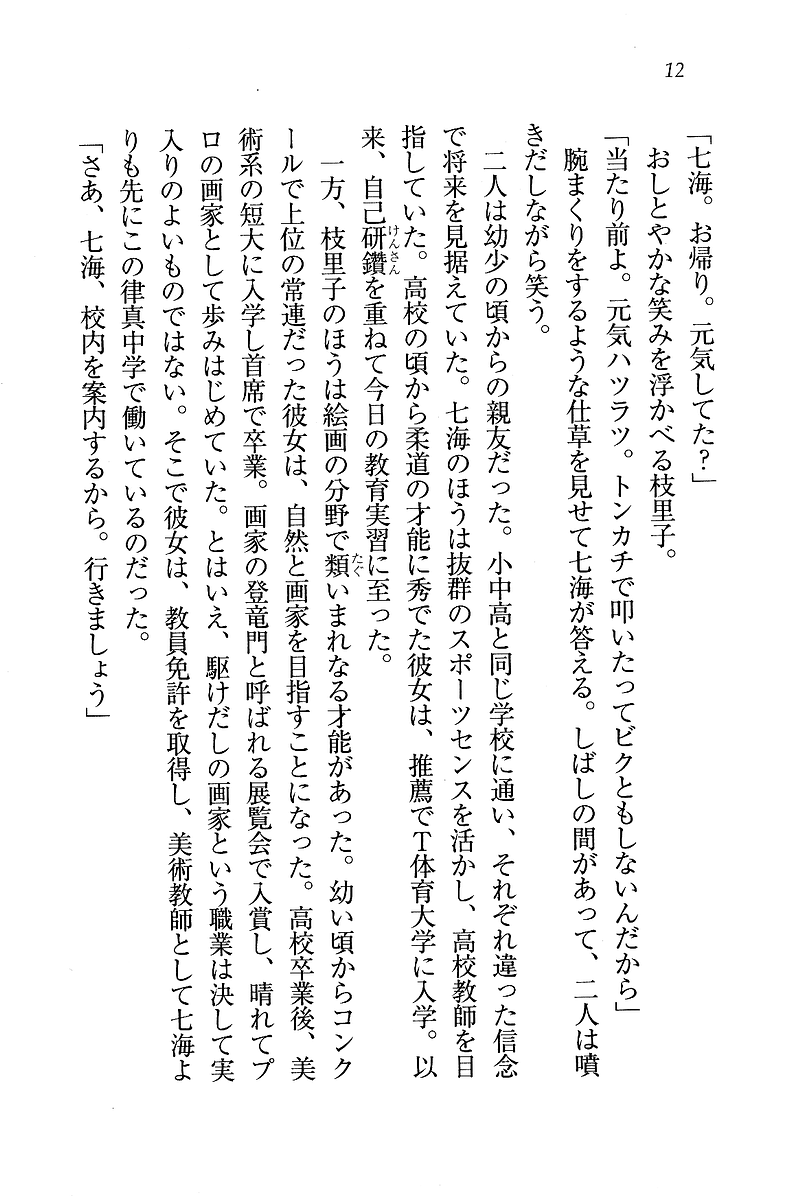 12
「七海。お帰り。元気してた？」
おしとやかな笑みを浮かべる枝里子。
「当たり前よ。元気ハツラツ。トンカチで叩いたってビクともしないんだから」
腕まくりをするような仕草を見せて七海が答える。しばしの間があって、二人は噴
きだしながら笑う。
二人は幼少の頃からの親友だった。小中高と同じ学校に通い、それぞれ違った信念
で将来を見据えていた。七海のほうは抜群のスポーツセンスを活かし、高校教師を目
指していた。高校の頃から柔道の才能に秀でた彼女は、推薦でT体育大学に入学。以
来、自己研鑽けんさんを重ねて今日の教育実習に至った。
一方、枝里子のほうは絵画の分野で類たぐいまれなる才能があった。幼い頃からコンク
ールで上位の常連だった彼女は、自然と画家を目指すことになった。高校卒業後、美
術系の短大に入学し首席で卒業。画家の登竜門と呼ばれる展覧会で入賞し、晴れてプ
ロの画家として歩みはじめていた。とはいえ、駆けだしの画家という職業は決して実
入りのよいものではない。そこで彼女は、教員免許を取得し、美術教師として七海よ
りも先にこの律真中学で働いているのだった。
「さあ、七海、校内を案内するから。行きましょう」